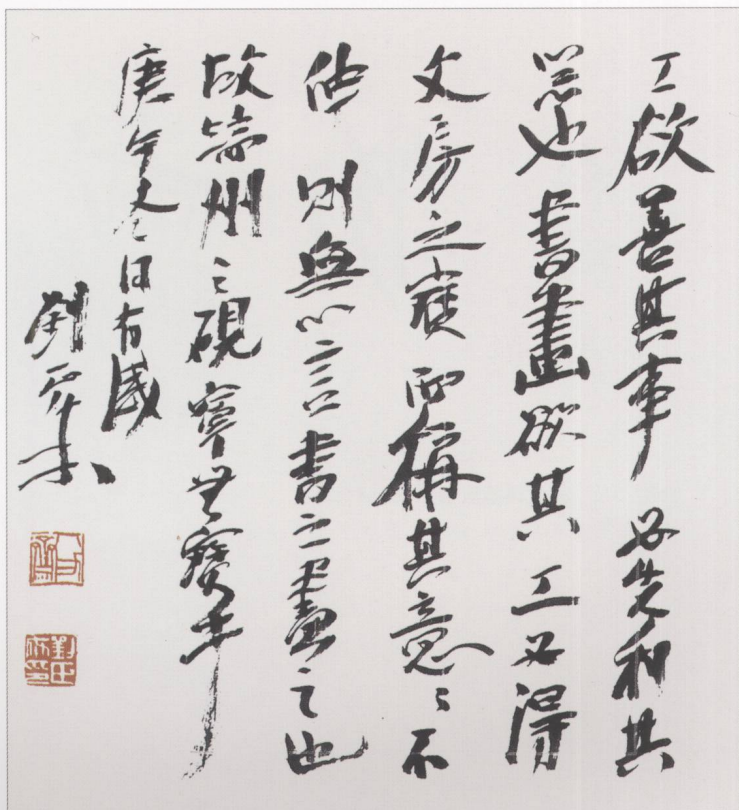 工欲善其事必先利其
器也書畫欲其工必得
文房之寶而稱其意々不
他則無以言書之畫之也
故端州之硯寧無寶乎
庚午冬日有感
劉